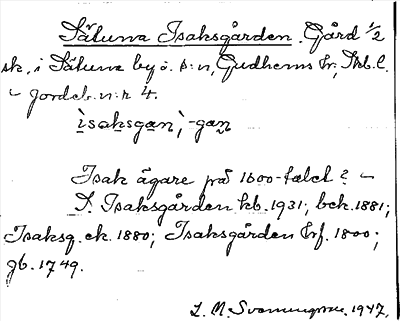 Sätuna Isaksgården. Gård 1/2
sk. i Sätuna by ö. s:n, Gudhems hr, Skb. l.
– jordeb. n:r 4.
ìsaksgan, -gan
Isak ägare på 1600-talet? –
S. Isaksgården kb. 1931; bck. 1881;
Isaksg. ek. 1880; Isaksgården Erf. 1800;
gb. 1749.
1947.